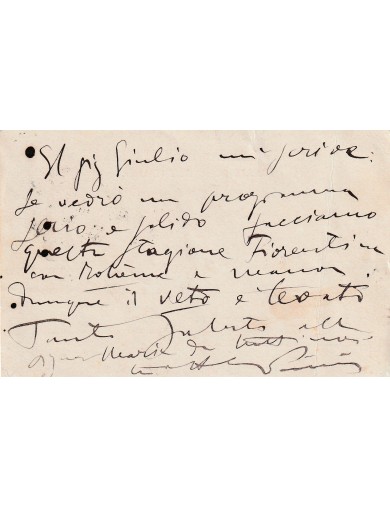 Il Sig Giulio mi scrive:
Se vedrò un programma
serio e solido facciamo
questa stagione Fiorentina
con Bohème e Manon
dunque il veto è levato
Tanti saluti alla
Maria da tutti noi